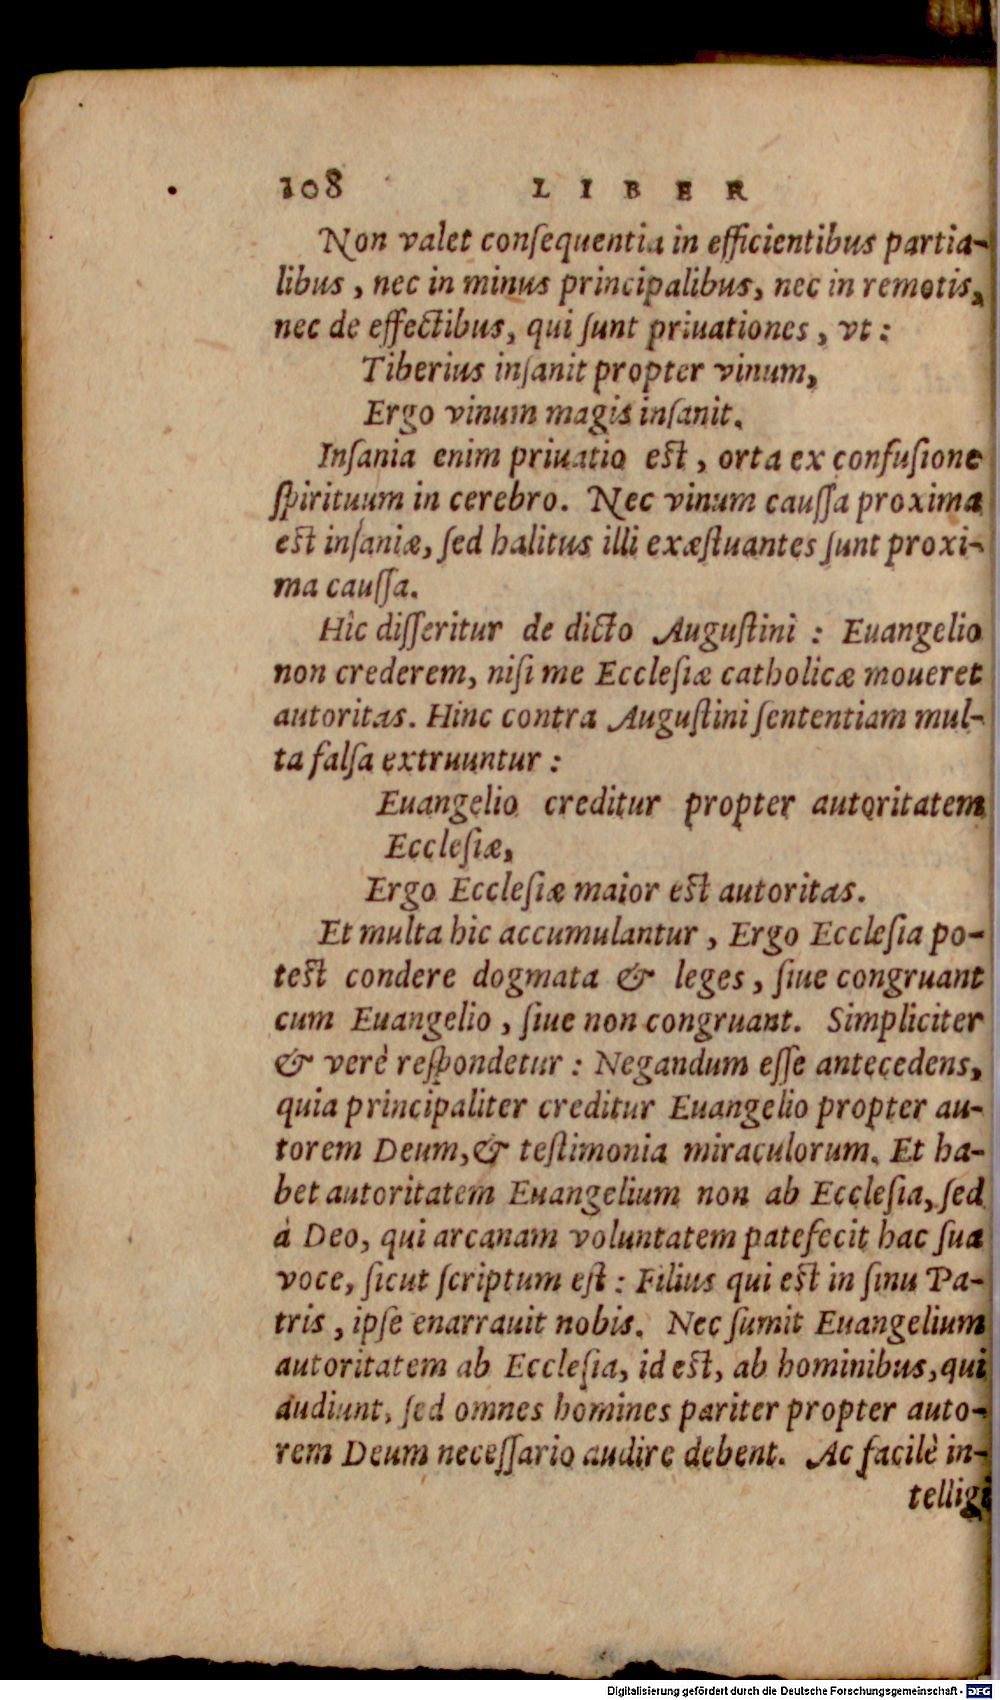 108 LIBER
Non valet conſequentia in efficientibus partia-
libus, nec in minus principalibus, nec in remotis,
nec de effectibus, qui ſunt priuationes, vt:
Tiberius inſanit propter vinum,
Ergo vinum magis inſanit.
Inſania enim priuatio est, orta ex confuſione
ſpirituum in cerebro. Nec vinum cauſſa proxima
est inſaniæ, ſed halitus illi exæſtuantes ſunt proxi-
ma cauſſa.
Hîc diſſeritur de dicto Auguſtini: Euangelio
non crederem, niſi me Eccleſiæ catholicæ moueret
autoritas. Hinc contra Auguſtini ſententiam mul-
ta falſa extruuntur:
Euangelio creditur propter autoritatem
Eccleſiæ,
Ergo Eccleſiæ maior est autoritas.
Et multa hic accumulantur, Ergo Eccleſia po-
test condere dogmata & leges, ſiue congruant
cum Euangelio, ſiue non congruant. Simpliciter
& verè reſpondetur: Negandum eſſe antecedens,
quia principaliter creditur Euangelio propter au-
torem Deum, & teſtimonia miraculorum. Et ha-
bet autoritatem Euangelium non ab Eccleſia, ſed
à Deo, qui arcanam voluntatem patefecit hac ſua
voce, ſicut ſcriptum eſt: Filius qui est in ſinu Pa-
tris, ipſe enarrauit nobis. Nec ſumit Euangelium
autoritatem ab Eccleſia, id est, ab hominibus, qui
audiunt, ſed omnes homines pariter propter auto-
rem Deum neceſſario audire debent. Ac facilè in-
telligi
Digitalisierung gefördert durch die Deutsche Forschungsgemeinschaft - DFG